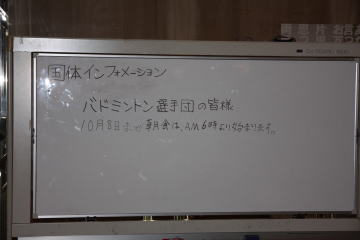 国体インフォメーション
バドミントン選手団の皆様
10月8日まで朝食は、AM6時より始まります。